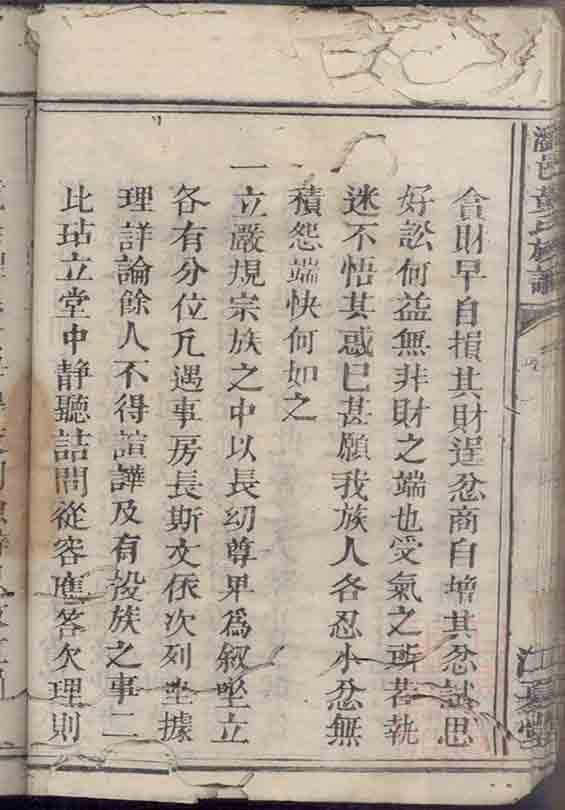 邑黃氏族譜
江夏堂
貪財早自損其財逞忿商自增其忿試思
好訟何益無非財之端也受氣之班若執
迷不悟其惑已甚願我族人各忍小忿無
積怨端快何如之
一立嚴規宗族之中以長幼尊卑為叙坐立
各有分位凢遇事房長斯文依次列坐據
理詳論餘人不得諠譁及有投族之事二
比跕立堂中靜聽詰問從容應答欠理則